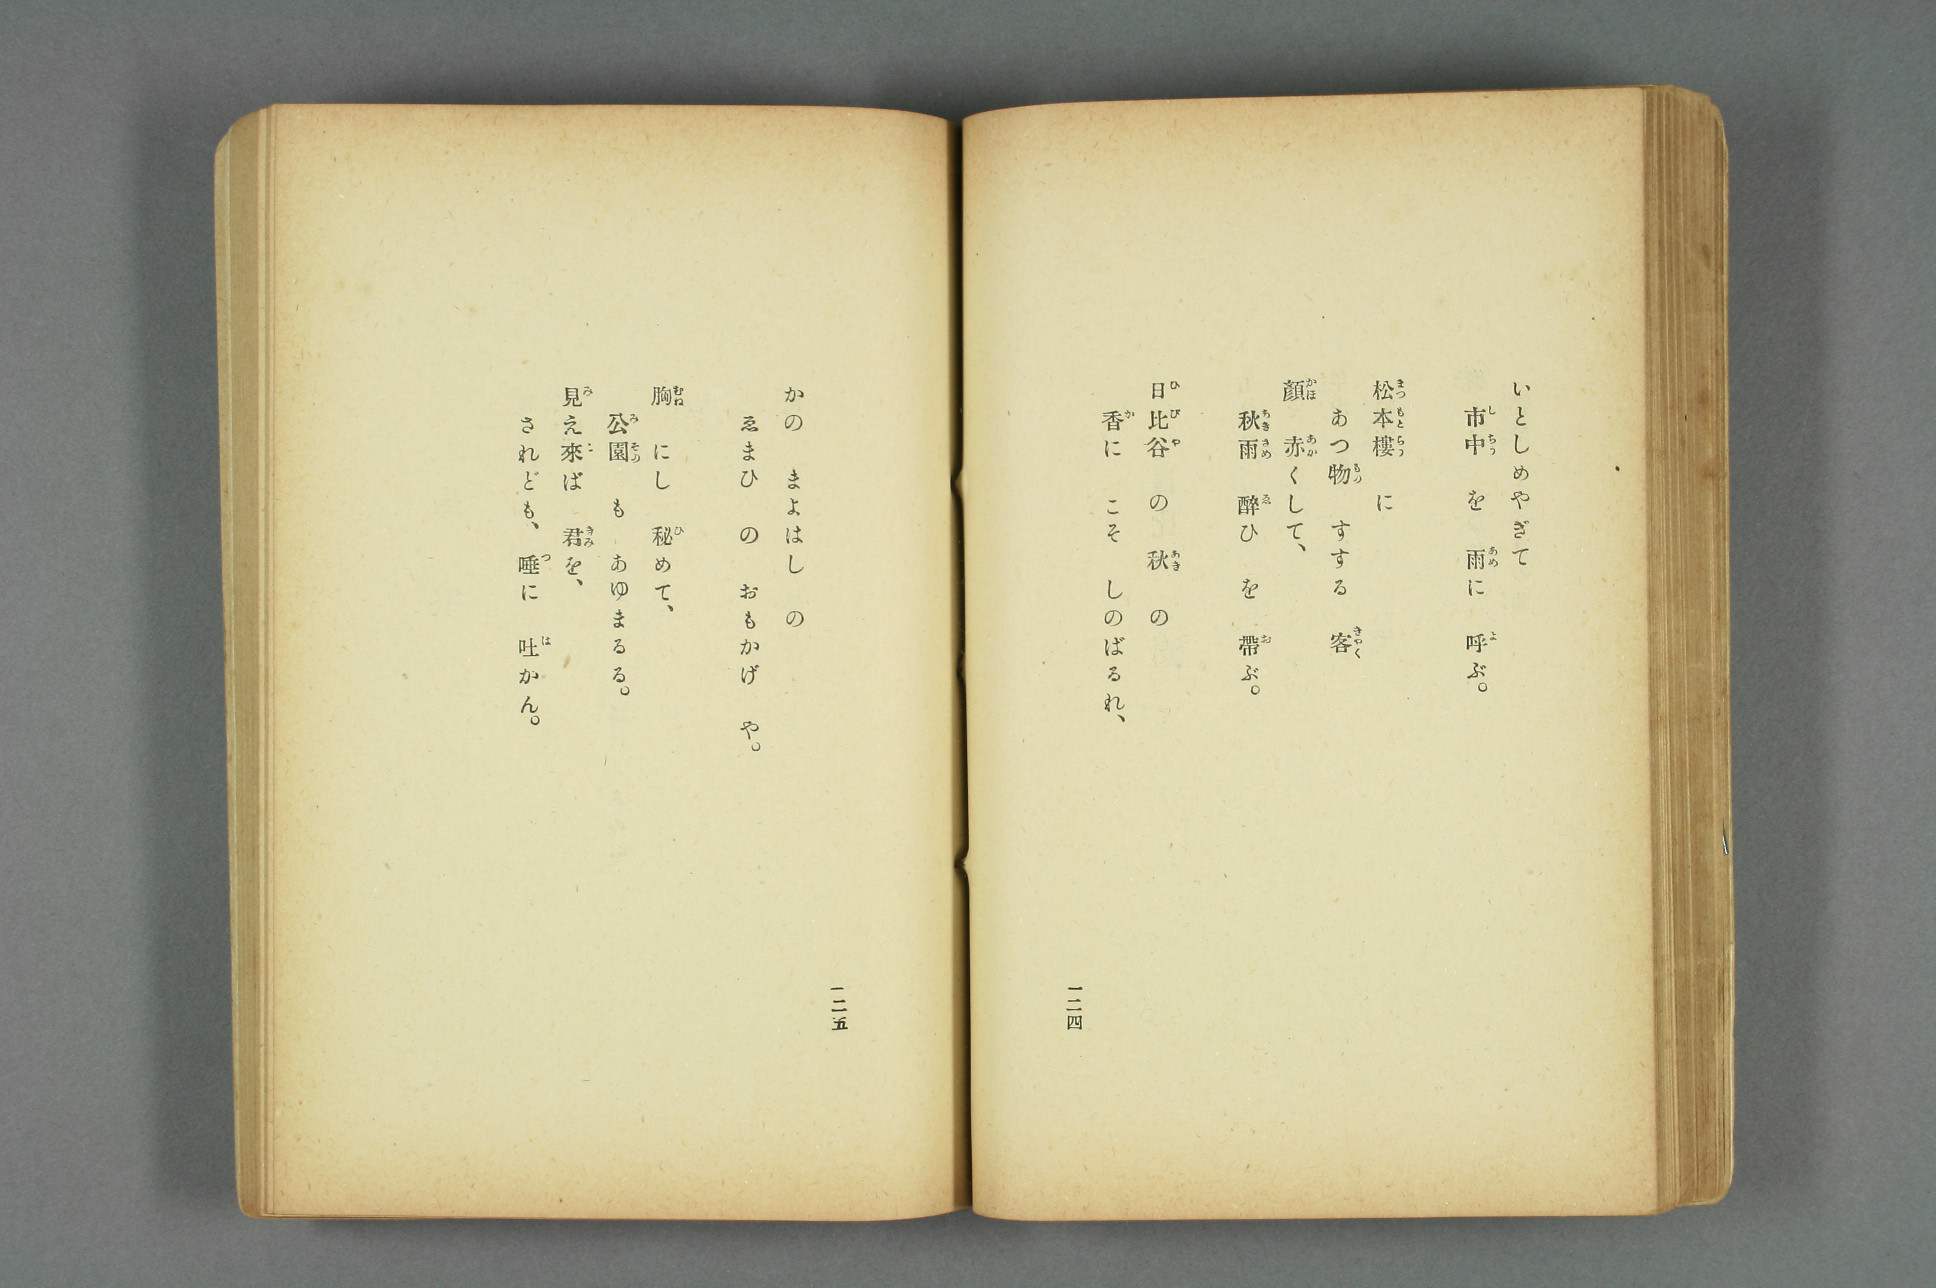 いとしめやぎて
市中を 雨に 呼ぶ。
松本樓 に
あつ物 すする 客
顏 赤くして、
秋雨 醉ひ を 帶ぶ。
日比谷 の 秋 の
香に こそ しのばるれ、
一二四
かの まよはし の
ゑまひ の おもかげ や。
胸 にし 秘めて、
公園 も あゆまるる。
見え來ば 君を、
されども、唾に 吐かん。
一二五